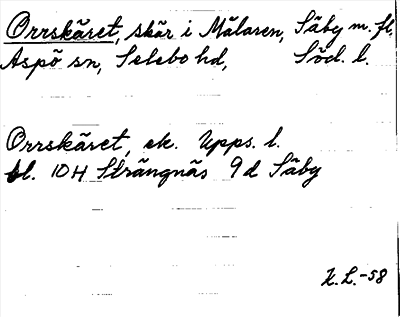 Orrskäret, skär i Mälaren, Säby m. fl.
Aspö sn, Selebo hd, Söd. l.
Orrskäret, ek. Upps. l.
bl. 10H Strängnäs 9d Säby
K.L.-58